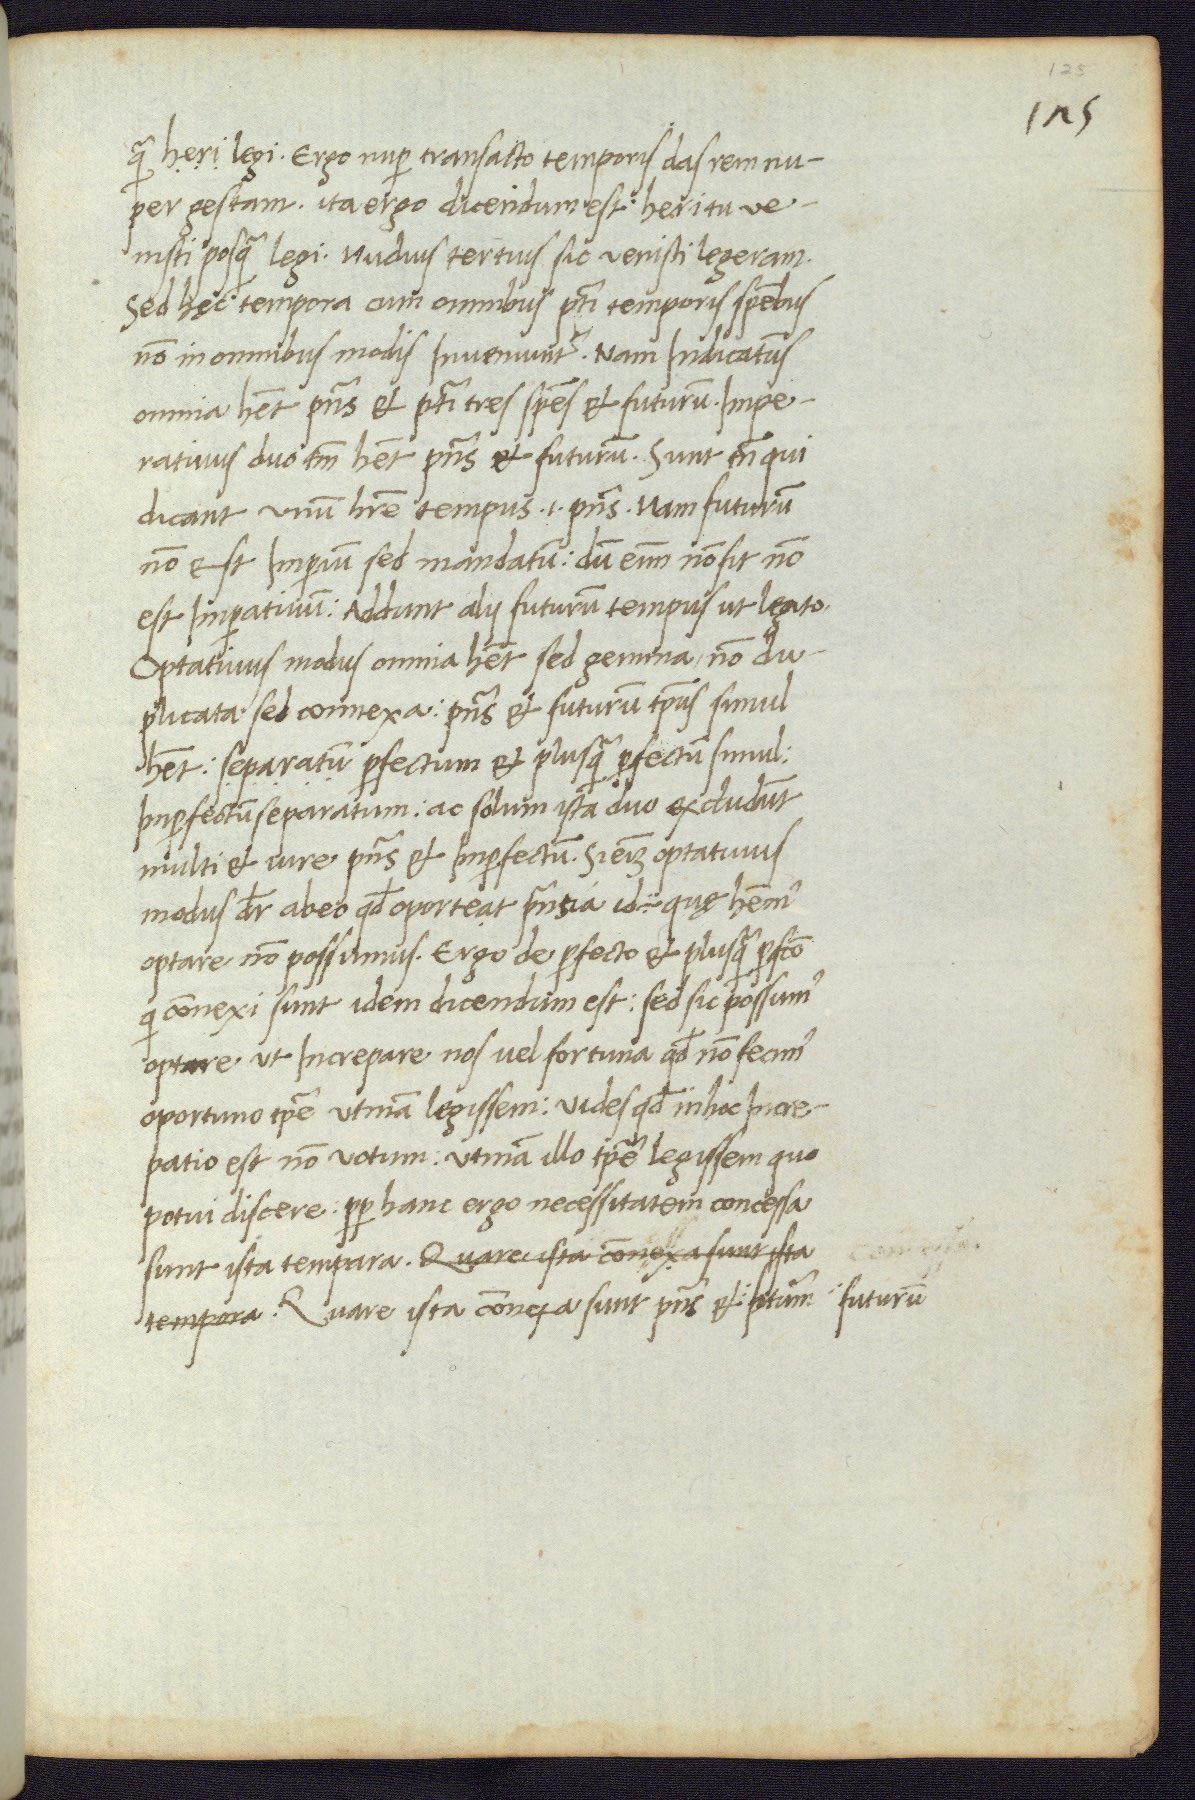 125
125
q̄ heri legi. Ergo nuꝑ transacto temporis das rem nu-
per gestam. ita ergo dicendum est: heri tu ve-
nisti posq̄ legi. Nudius tertius sic venisti legeram.
Sed hęc tempora cum omnibus p̄ti temporis spēbus
nō in omnibus modis inveniuntᷣ. Nam indicatīus
omnia hēnt p̄ns et p̄ti tres spēs et futurū. Impe-
rativus duo tm̄ hēnt p̄ns et futurū. Sunt tn̄ qui
dicant unū hr̄e tempus .i. p̄ns. Nam futurū
nō est imꝑiū sed mandatū: dū eīm nō fit nō
est imꝑativū: Addunt alij futurū tempus ut legito.
Optativus modus omnia hēt sed gemina, nō du-
plicata sed connexa: p̄ns et futurū tp̄us simul
hēt: separatū ꝑfectum et plusq̄ ꝑfectū simul:
imꝑfectū separatum: ac solum ista duo excludūt
multi et iure p̄ns et imꝑfectū. Si eīm optativus
modus dr̄ ab eo qd̄ oporteat p̄ntia id quę hēmꝰ
optare nō possumus. Ergo de ꝑfecto et plusq̄ ꝑfc̄o
q̄ cōnexi sunt idem dicendum est: sed sic possumꝰ
optare ut increpare nos vel fortuna qd̄ nō fecimꝰ
oportuno tp̄e utinā legissem: vides qd̄ in hoc incre-
patio est nō votum: utinā illo tp̄e legissem quo
potui discere: ꝓꝑ hanc ergo necessitatem concessa
sunt ista tempora. Quare ista cōnexa sunt ista
tempora. Quare ista cōnexa sunt p̄ns et futurū